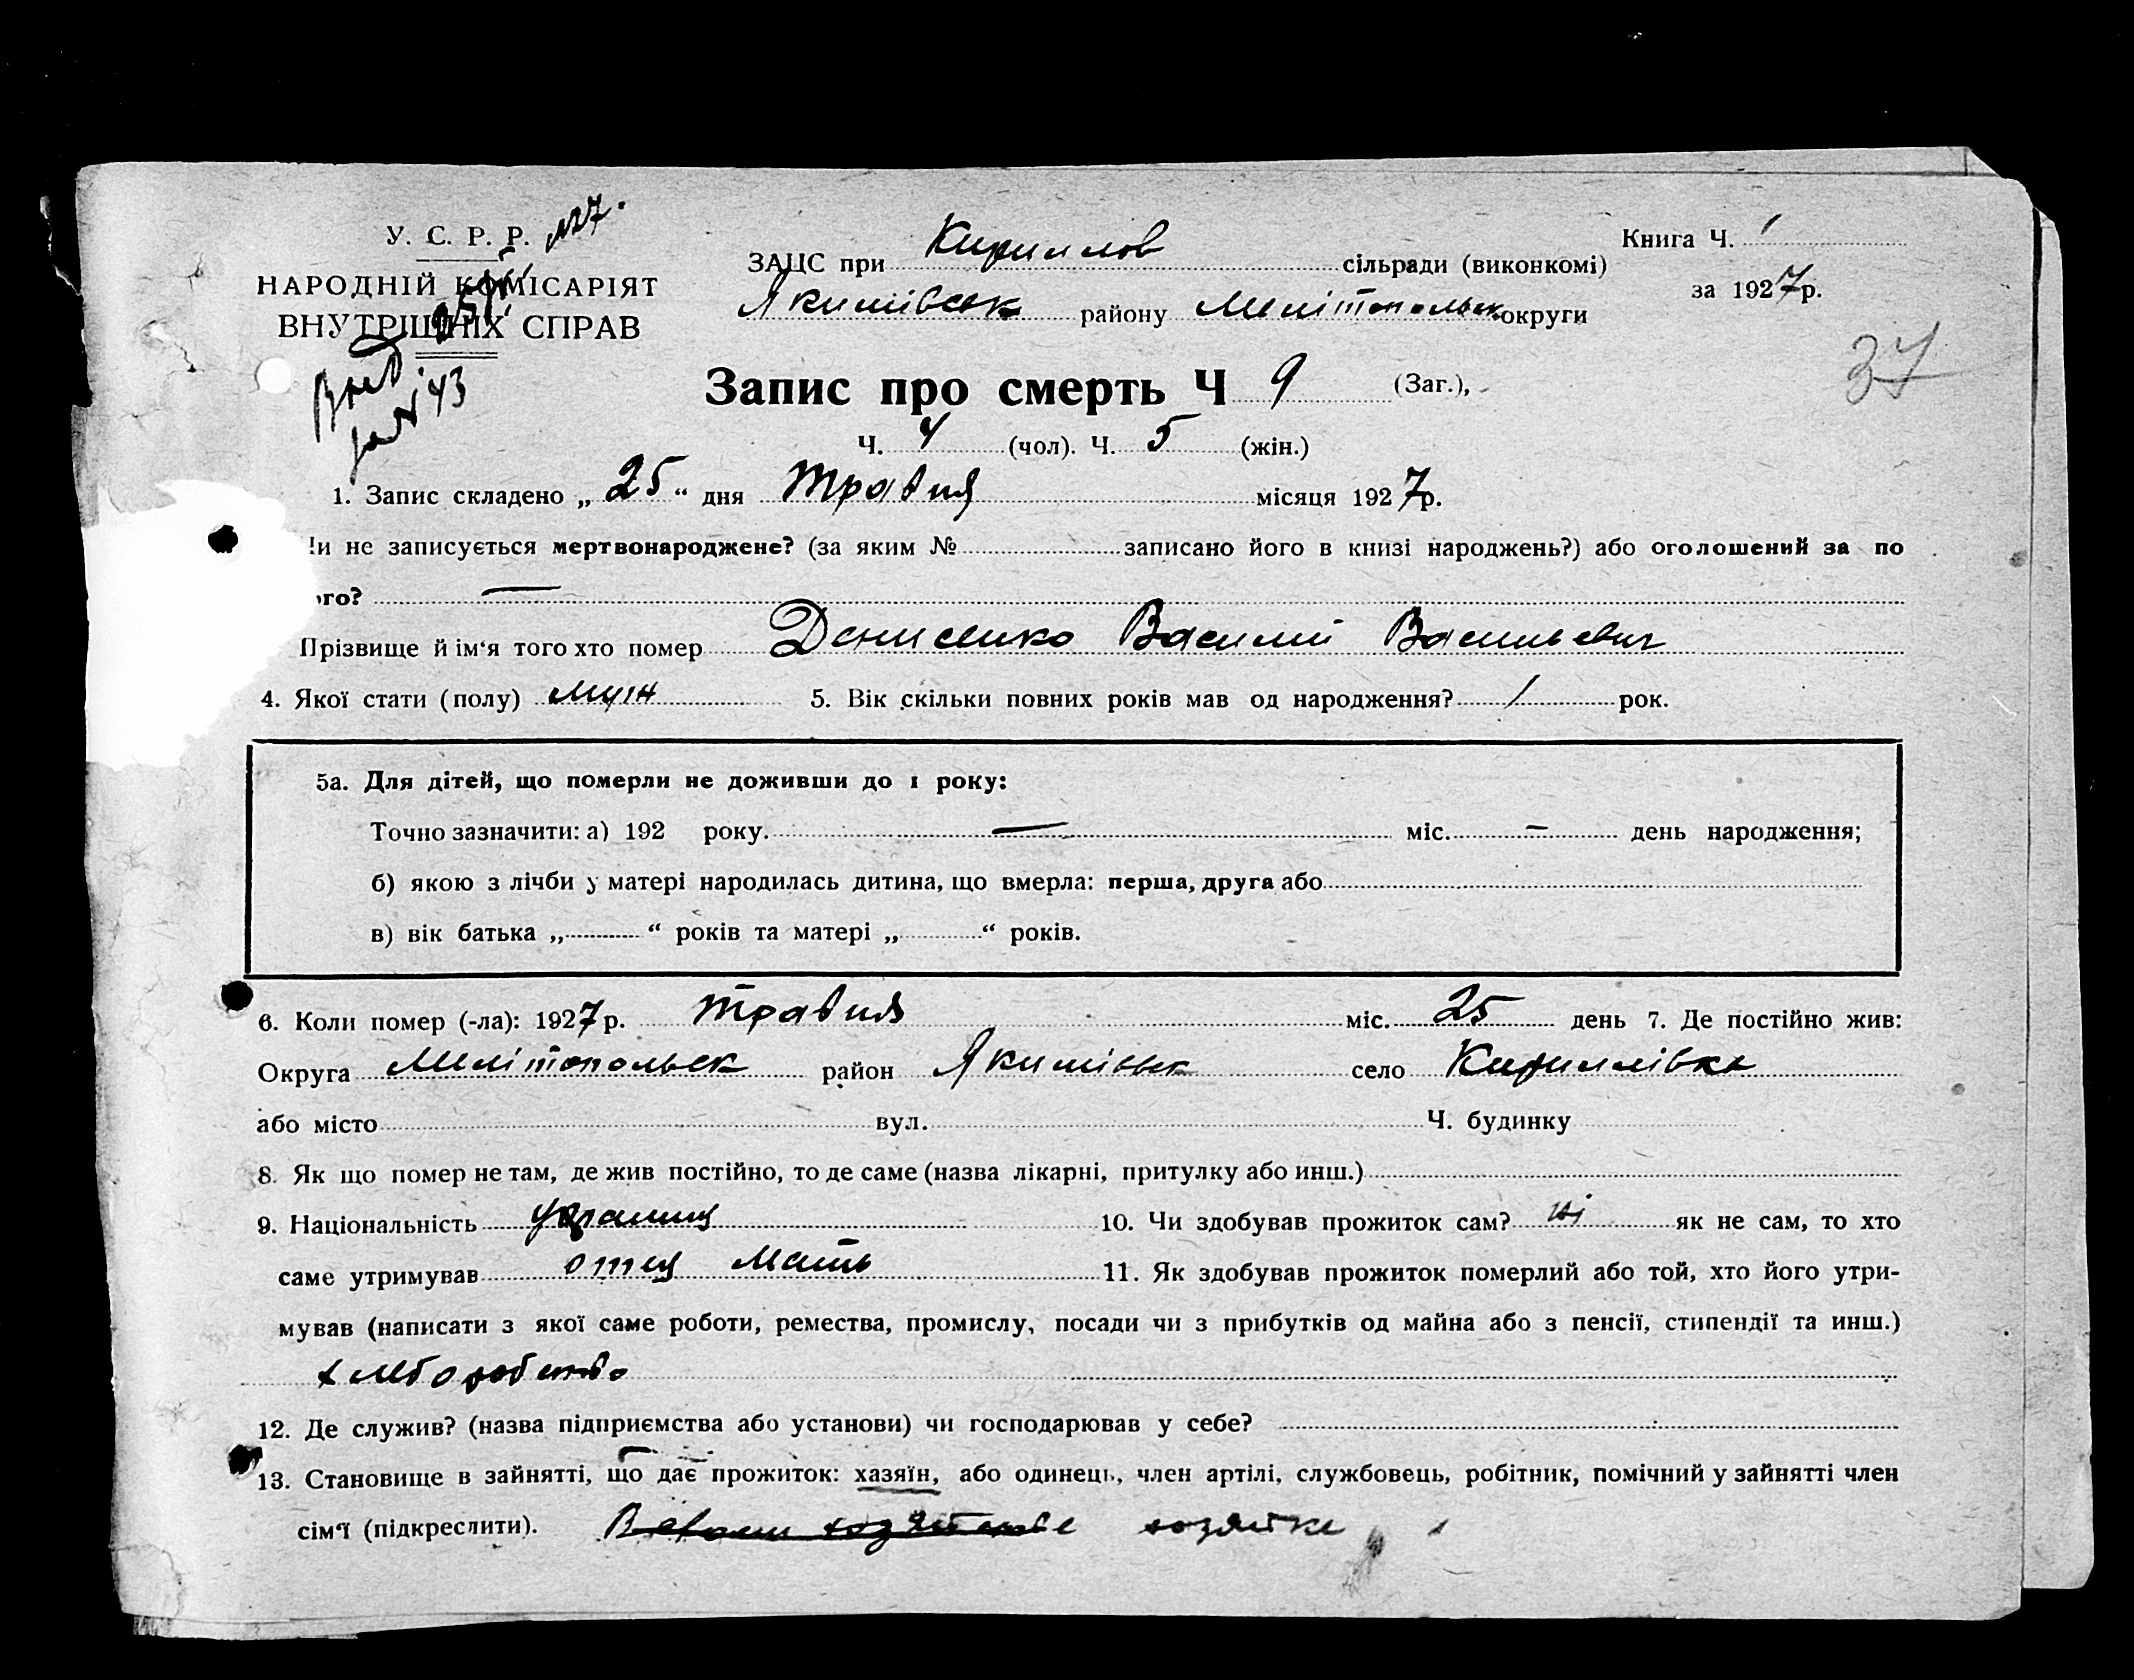 У. С. Р. Р.
НАРОДНІЙ КОМІСАРІЯТ
ВНУТРІШНІХ СПРАВ
ЗАЦС при Кириллов сільради (виконкомі)
Якимівськ району Мелітопольск округи
Книга Ч. 1
за 1927 р.
37
Запис про смерть Ч 9 (Заг.),
Ч. 4 (чол). Ч. 5 (жін.)
1. Запис складено „ 25 “ дня травня місяця 1927 р.
и не записується мертвонароджене? (за яким № записано його в книзі народжень?) або оголошений за по
ого? —
Прізвище й ім‘я того хто помер Денисенко Василий Васильевич
4. Якої стати (полу) муж 5. Вік скільки повних років мав од народження? 1 рок.
5а. Для дітей, що померли не доживши до 1 року:
Точно зазначити: а) 192 року. — міс. — день народження;
б) якою з лічби у матері народилась дитина, що вмерла: перша, друга або
в) вік батька „ “ років та матері „ “ років.
6. Коли помер (-ла): 1927 р. травня міс. 25 день 7. Де постійно жив:
Округа Мелітопольск район Якимівськ село Кириллівка
або місто вул. Ч. будинку
8. Як що помер не там, де жив постійно, то де саме (назва лікарні, притулку або инш.)
9. Національність 10. Чи здобував прожиток сам? ні як не сам, то хто
саме утримував отец мать 11. Як здобував прожиток померлий або той, хто його утри-
мував (написати з якої саме роботи, ремества, промислу, посади чи з прибутків од майна або з пенсії, стипендії та инш.)
хлеборобство
12. Де служив? (назва підприємства або установи) чи господарював у себе?
13. Становище в зайнятті, що дає прожиток: хазяїн, або одинець, член артілі, службовець, робітник, помічний у зайнятті член
сім‘ї (підкреслити).